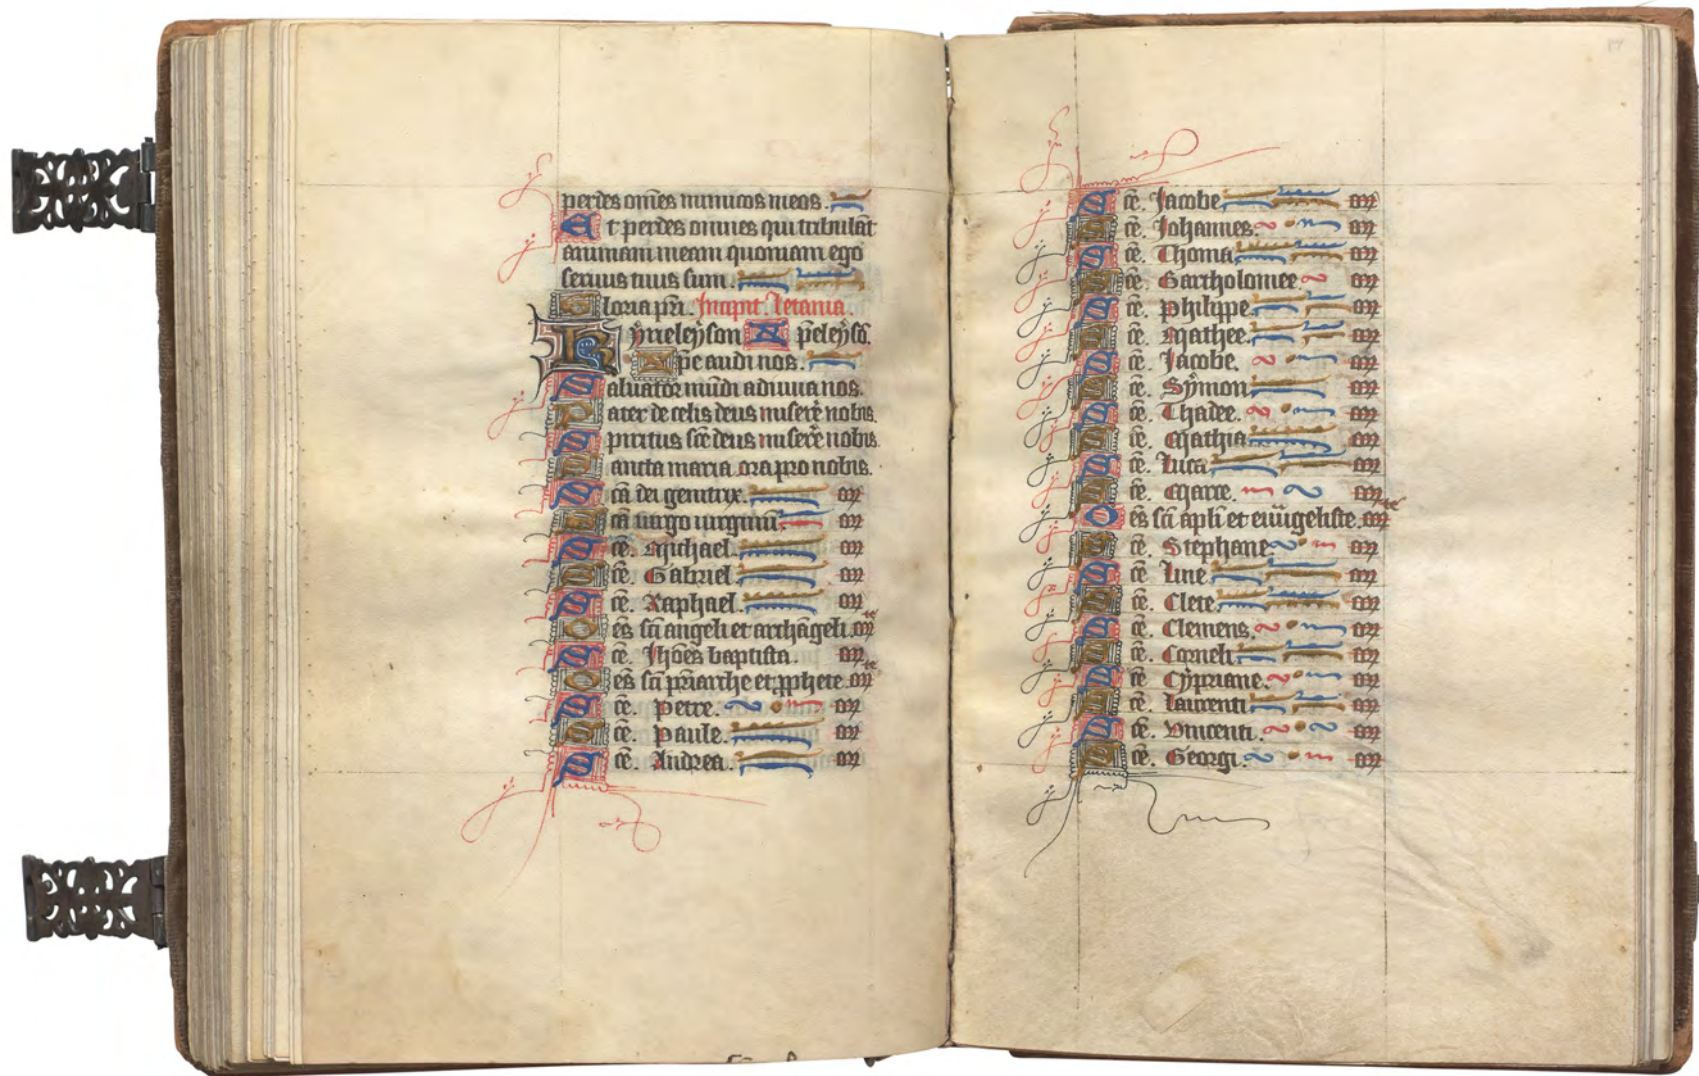 perdes om̄es inimicos meos.
Et perdes omnes qui tribulāt
animam meam quoniam ego
seruus tuus sum.
Gloria pr̄i. Incipit letania.
Kyrieleyson Xp̄eleysō.
Xp̄e audi nos.
Saluator mūdi adiuua nos.
Pater de celis deus miserē nobis.
Spiritus sc̄e deus miserē nobis.
Sancta maria ora pro nobis.
Scā dei genitrix. or̄
Scā uirgo uirginū or̄
Sc̄e. Michael. or̄
Sc̄e. Gabriel or̄
Sc̄e. Raphael. or̄
Om̄s sc̄i angeli et archāgeli. or̄ te
Sc̄e. Jhōes baptista. or̄
Om̄s sc̄i pr̄iarche et pphete. or̄ te
Sc̄e. Petre. or̄
Sc̄e. Paule. or̄
Sc̄e. Andrea. or̄
Sc̄e. Jacobe or̄
Sc̄e. Johannes. or̄
Sc̄e. Thoma or̄
Sc̄e. Bartholomee or̄
Sc̄e. Philippe. or̄
Sc̄e. Mathee. or̄
Sc̄e. Jacobe. or̄
Sc̄e. Symon or̄
Sc̄e. Thadee. or̄
Sc̄e. Mathia or̄
Sc̄e. Luca or̄
Sc̄e. Marce. or̄
Oēs sc̄i apl̄i et euāgeliste. or̄ te
Sc̄e. Stephane. or̄
Sc̄e. Line. or̄
Sc̄e. Clete. or̄
Sc̄e. Clemens. or̄
Sc̄e. Corneli or̄
Sc̄e. Cypriane. or̄
Sc̄e. Laurenti or̄
Sc̄e. Vincenti. or̄
Sc̄e. Georgi. or̄